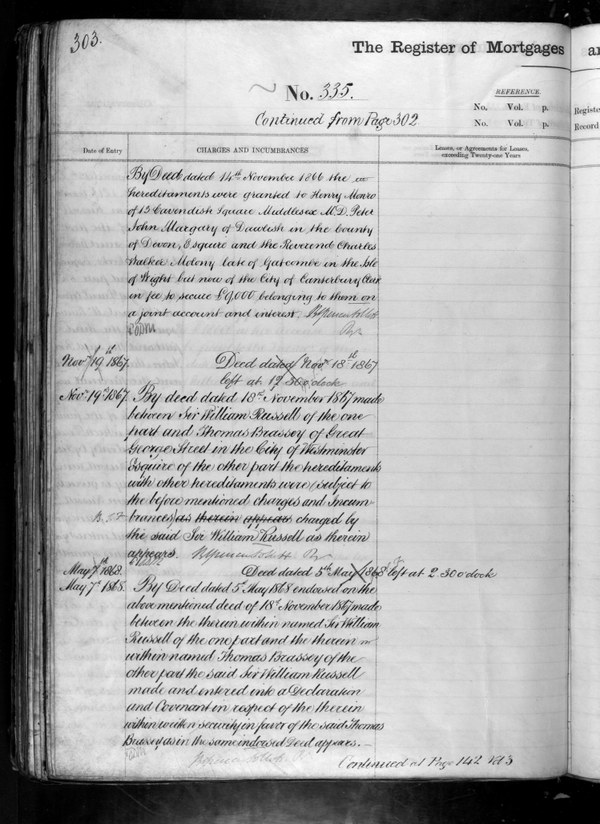 303.
The Register of Mortgages
an
No. 335.
REFERENCE.
Continued from Page 302
No. Vol. p.
No. Vol. p.
Registe
Record
Date of Entry
CHARGES AND INCUMBRANCES
Leases, or Agreements for Leases,
exceeding Twenty-one Years
By Deed dated 14th November 1866 the
hereditaments were granted to Henry Monro
of 13 Cavendish Square Middlesex M.D. Peter
John Margary of Dawlish in the County
of Devon, Esquire and the Reverend Charles
Walker Molony late of Gatcombe in the Isle
of Wight but now of the City of Canterbury Clerk
in fee to secure £9,000 belonging to them on
a joint account and interest.
Novr. 19th 1867.
Deed dated Novr. 18th 1867
left at 12.30 o'clock
Novr. 19th 1867.
By deed dated 18th November 1867 made
between Sir William Russell of the one
part and Thomas Brassey of Great
George Street in the City of Westminster
Esquire of the other part the hereditaments
with other hereditaments were (subject to
the before mentioned charges and Incum-
brances) as therein appears charged by
the said Sir William Russell as therein
appears.
May 7th 1868.
Deed dated 5th May 1868 left at 2.30 o'clock
May 7th 1868.
By Deed dated 5th May 1868 endorsed on the
above mentioned deed of 18th November 1867 made
between the therein within named Sir William
Russell of the one part and the therein
within named Thomas Brassey of the
other part the said Sir William Russell
made and entered into a Declaration
and Covenant in respect of the therein
within written security in favor of the said Thomas
Brassey as in the same endorsed Deed appears.
Continued at Page 142 Vol 3